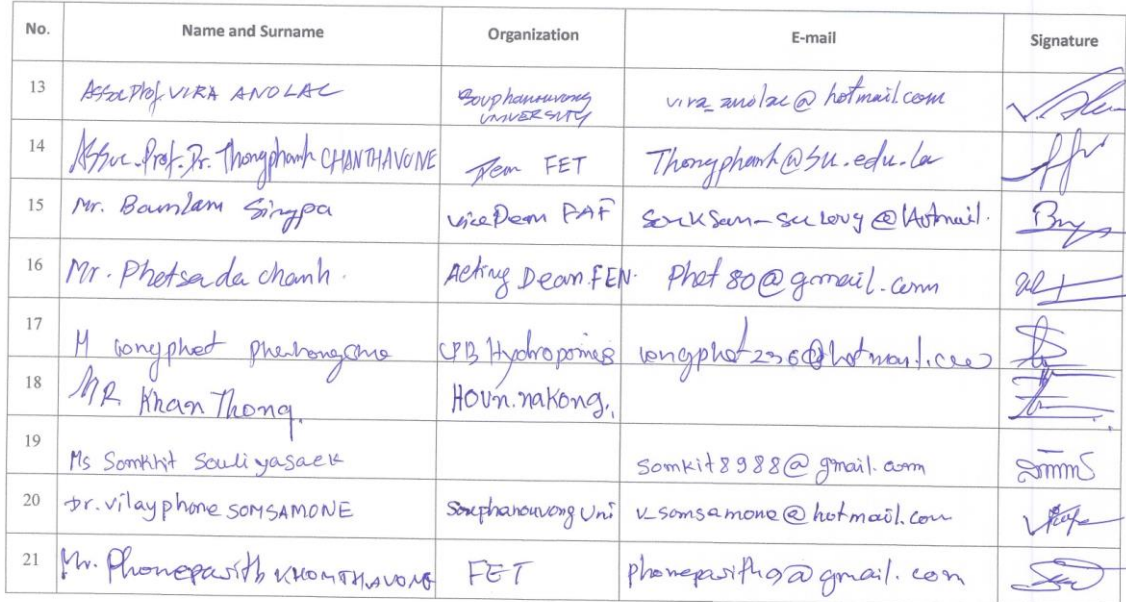 No. Name and Surname Organization E-mail Signature
13 Assoc.Prof. VIRA ANOLAC Souphanouvong UNIVERSITY vira_anolac@hotmail.com
14 Assoc.Prof.Dr. Thongphanh CHANTHAVONE Dean FET Thongphanh@su.edu.la
15 Mr. Bounlam Singpa Vice Dean FAF
16 Mr. Phetsada chanh. Acting Dean.FEN. Phet80@gmail.com
17 CPB Hydroponics
18 MR. Khan Thong. Houn.nakong.
19 Ms Somkhit Souliyasaek somkit8988@gmail.com
20 Dr. vilayphone SOMSAMONE Souphanouvong Uni v_somsamone@hotmail.com
21 Mr. Phoneparith KHOMTHAVONG FET phoneparith9@gmail.com